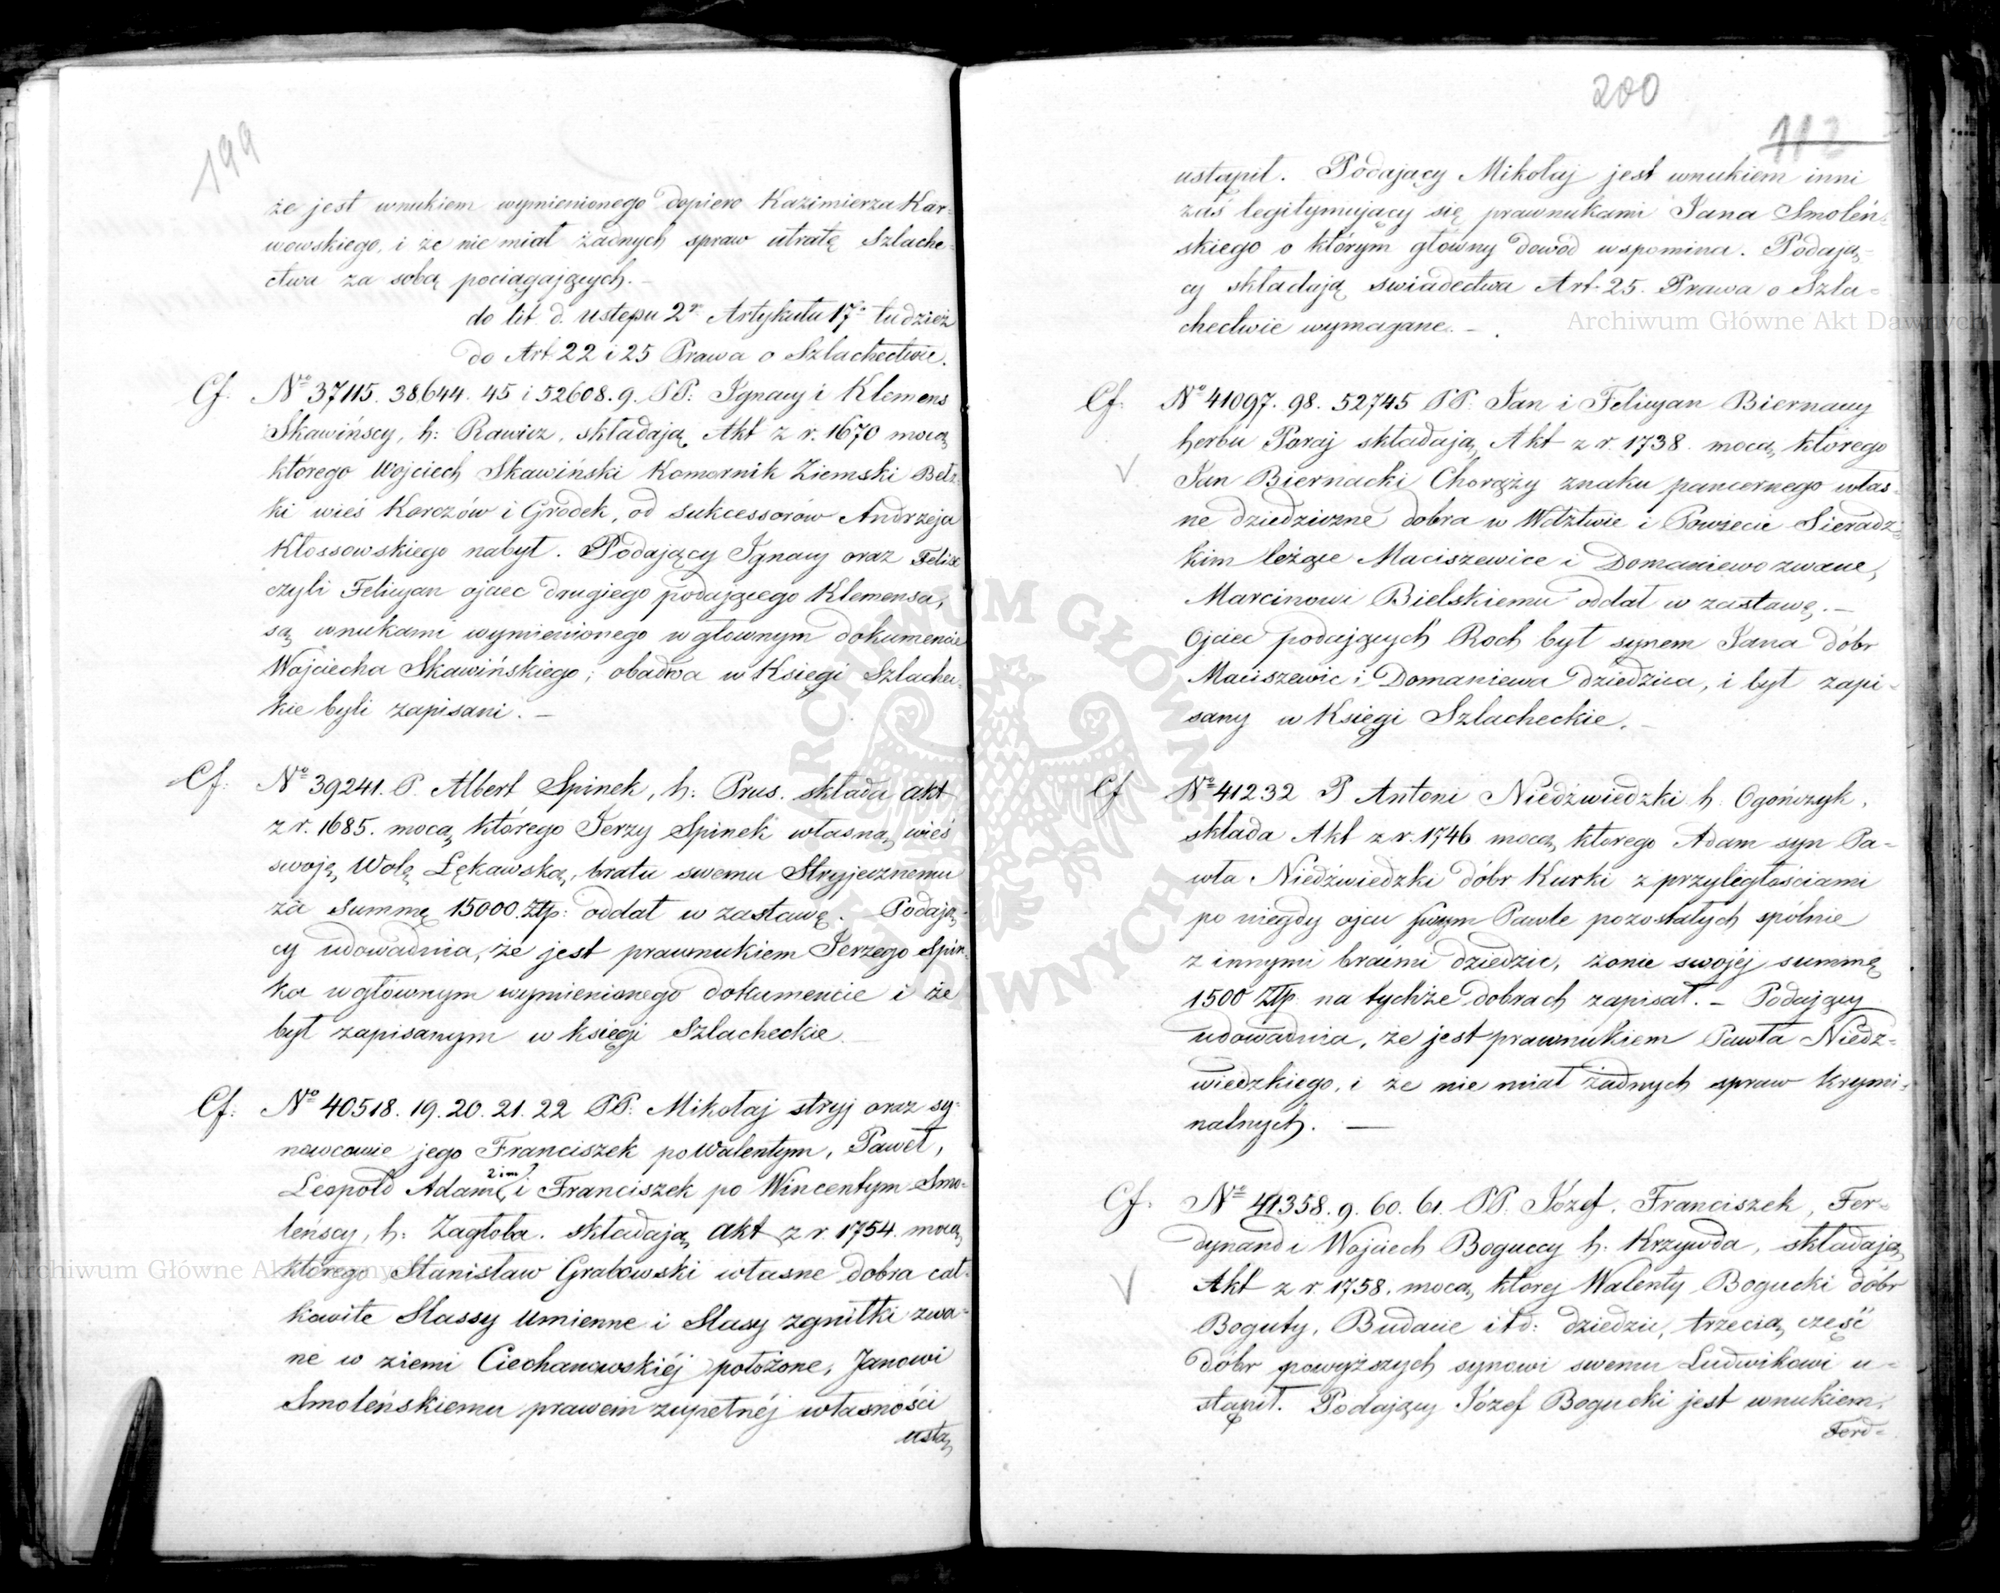 199
że jest wnukiem wymienionego dopiero Kazimierza Kar-
wowskiego, i że nie miał żadnych spraw utratę Szlache-
ctwa za sobą pociągających. —
do lit. d. ustępu 2º Artykułu 17º tudzież
do Art 22 i 25 Prawa o Szlachectwie.
Cf. Nº 37115. 38644. 45 i 52608. 9. PP: Ignacy i Klemens
Skawińscy, h: Rawicz, składają Akt z r. 1670 mocą
którego Wojciech Skawiński Komornik Ziemski Bełz-
ki wieś Karczów i Gródek, od sukcessorow Andrzeja
Kłossowskiego nabył. Podający Ignacy oraz Felix
czyli Felicyan ojciec drugiego podającego Klemensa,
są wnukami wymienionego w głównym dokumencie
Wojciecha Skawińskiego; obadwa w Księgi Szlachec-
kie byli zapisani. —
Cf. Nº 39241. P. Albert Spinek, h: Prus. składa akt
z r. 1685. mocą którego Jerzy Spinek własną wieś
swoją Wolę Łękawską, bratu swemu Stryjecznemu
za summę 15000. Złp: oddał w zastawę. — Podają-
cy udowadnia, że jest prawnukiem Jerzego Spin-
ka w głównym wymienionego dokumencie i że
był zapisanym w księgi Szlacheckie. —
Cf: Nº 40518. 19. 20. 21. 22 PP: Mikołaj stryj oraz sy-
nowcowie jego Franciszek po Walentym, Paweł,
2 im.
Leopold Adam, i Franciszek po Wincentym Smo-
leńscy, h: Zagłoba. składają akt z r 1754. mocą
którego Stanisław Grabowski własne dobra cał-
kowite Slassy Umienne i Slasy zgniłki zwa-
ne w ziemi Ciechanowskiéj położone, Janowi
Smoleńskiemu prawem zupełnéj własności
ustą
200
112
ustąpił. Podający Mikołaj jest wnukiem inni
zaś legitymujący się prawnukami Jana Smoleń-
skiego o którym główny dowód wspomina. Podają-
cy składają swiadectwa Art. 25. Prawa o Szla-
chectwie wymagane. —
Cf. Nº 41097. 98. 52745 PP: Jan i Felicyan Biernaccy
herbu Poraj składają Akt z r. 1738. mocą którego
Jan Biernacki Chorąży znaku pancernego włas-
ne dziedziczne dobra w Wdztwie i Powiecie Sieradz-
kim leżące Maciszewice i Domaniewo zwane,
Marcinowi Bielskiemu oddał w zastawę. —
Ojciec podających Roch był synem Jana dóbr
Maciszewic i Domaniewa dziedzica, i był zapi-
sany w Księgi Szlacheckie. —
Cf Nº 41232 P Antoni Niedźwiedzki h. Ogończyk,
składa Akt z r. 1746 mocą ktorego Adam syn Pa-
wła Niedźwiedzki dóbr Kurki z przyległościami
po niegdy ojcu swym Pawle pozostałych spólnie
z innymi braćmi dziedzic, żonie swojéj summę
1500 Złp. na tychże dobrach zapisał. — Podający
udowadnia, że jest prawnukiem Pawła Niedź-
wiedzkiego, i że nie miał żadnych spraw krymi-
nalnych. —
Cf. Nº 41358. 9. 60. 61. PP. Józef, Franciszek, Fer-
dynand i Wojciech Boguccy h: Krzywda, składają
Akt z r. 1758. mocą ktorej Walenty Bogucki dóbr
Boguty, Budacie itd: dziedzic, trzecią część
dobr powyższych synowi swemu Ludwikowi u-
stąpił. Podający Józef Bogucki jest wnukiem,
Ferd-
Archiwum Główne Akt Dawnych
Archiwum Główne Akt Dawnych
ARCHIWUM GŁÓWNE AKT DAWNYCH